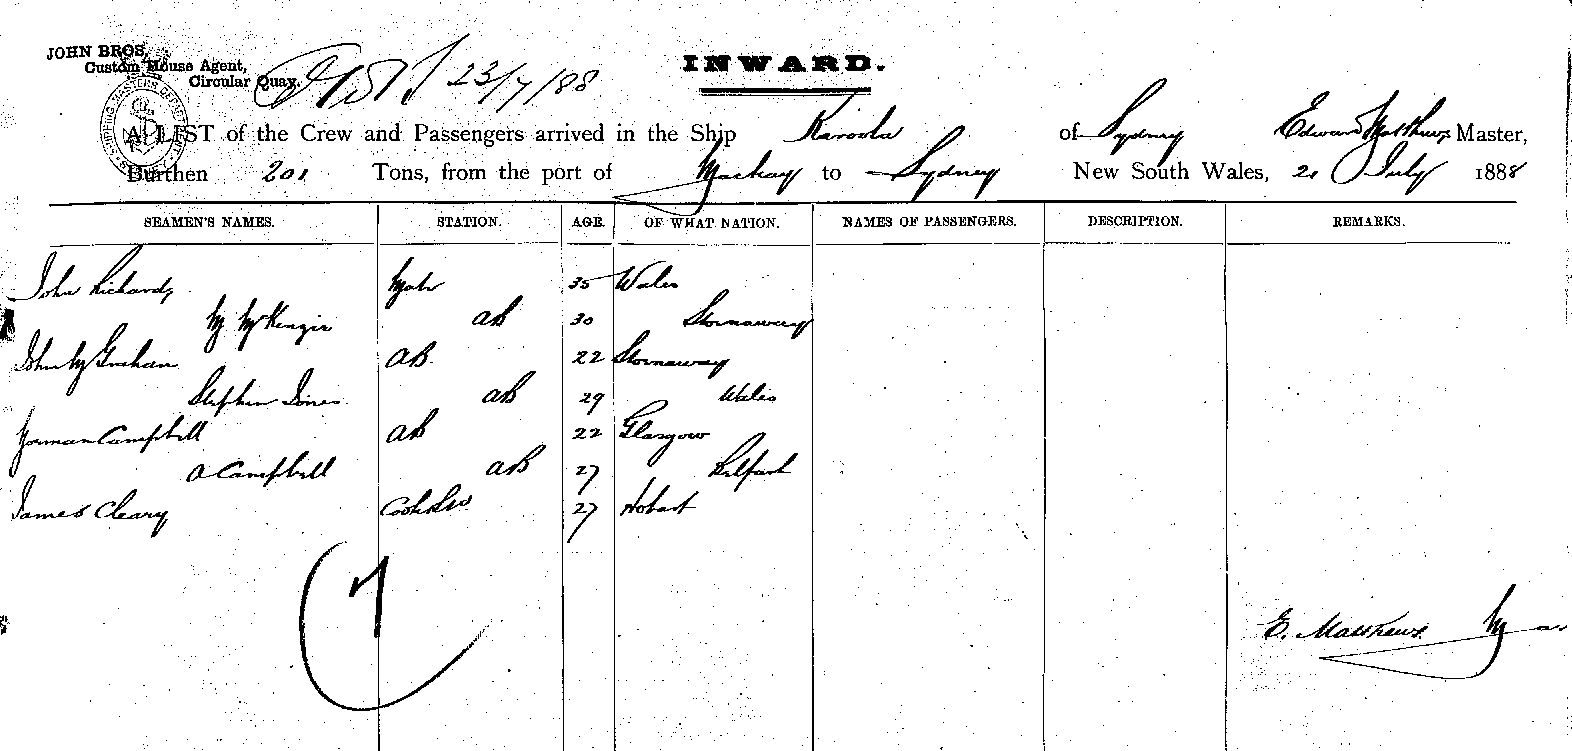 JOHN BROS,
Custom House Agent,
Circular Quay.
23/7/88
INWARD.
A LIST of the Crew and Passengers arrived in the Ship Karoola of Sydney Edward Matthews Master,
Burthen 201 Tons, from the port of Mackay to Sydney New South Wales, 21 July 1888
SEAMEN'S NAMES. STATION. AGE. OF WHAT NATION. NAMES OF PASSENGERS. DESCRIPTION. REMARKS.
John Richards Mate 35 Wales
M McKenzie AB 30 Stornaway
John M Graham AB 22 Stornaway
Stephen Jones AB 29 Wales
Norman Campbell AB 22 Glasgow
A Campbell AB 27 Belfast
James Cleary Cook 27 Hobart
7
E. Matthews